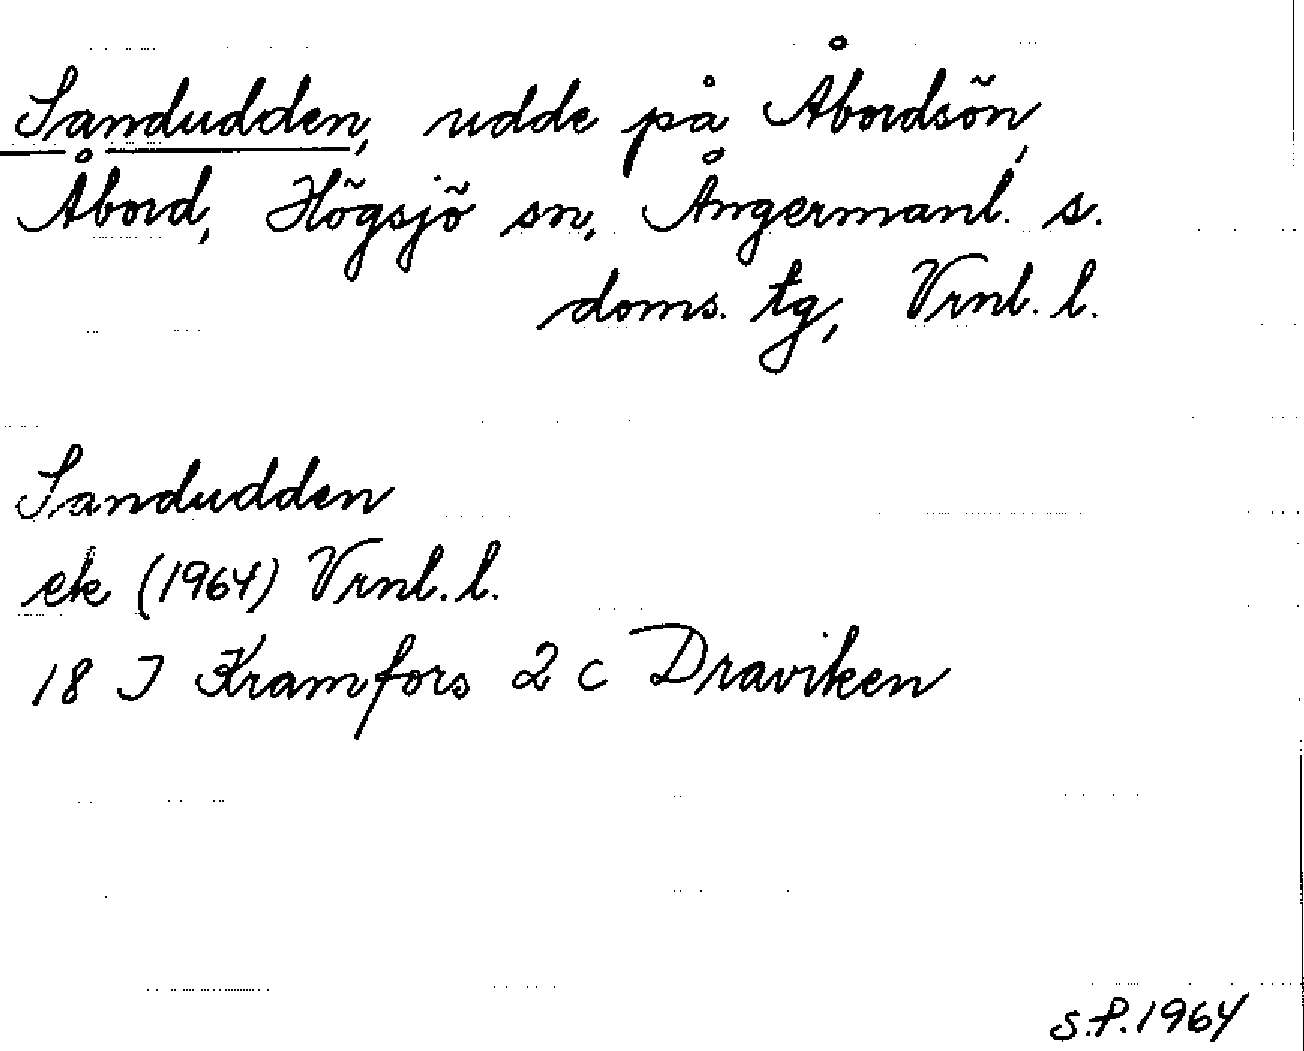 Sandudden, udde på Åbordsön,
Åbord, Högsjö sn, Ångermanl. s.
doms. tg, Vrnl. l.
Sandudden
ek (1964) Vrnl. l.
18 J Kramfors 2 c Draviken
S.P. 1964